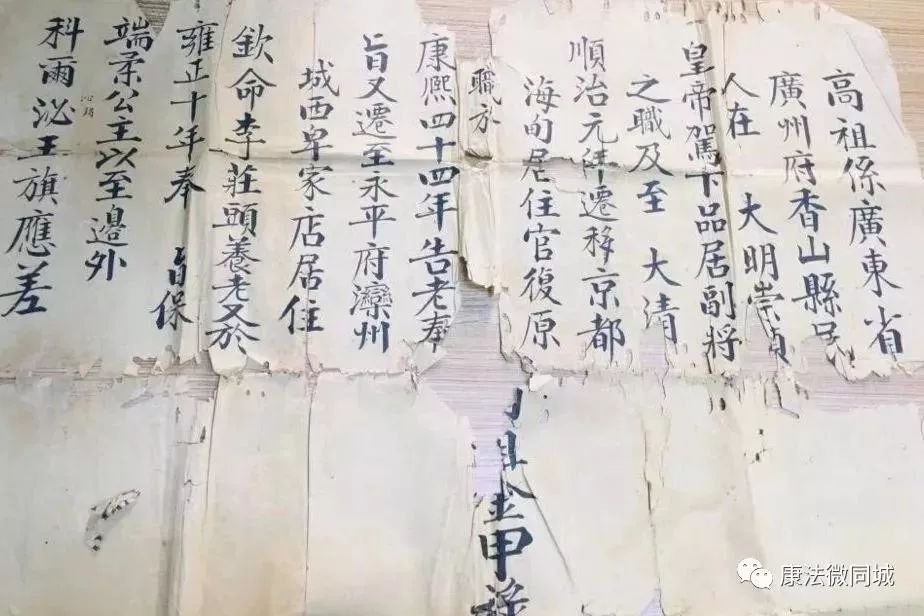 高祖係廣東省
廣州府香山縣民
人在 大明崇禎
皇帝駕下品居副將
之職及至 大清
順治元年遷移京都
海甸居住官復原
職於
康熙四十四年告老奉
旨又遷至永平府灤州
城西卑家店居住
欽命李莊頭養老又於
雍正十年奉 旨保
端柔公主以至邊外
科爾沁王旗應差
祖金甲
康法微同城